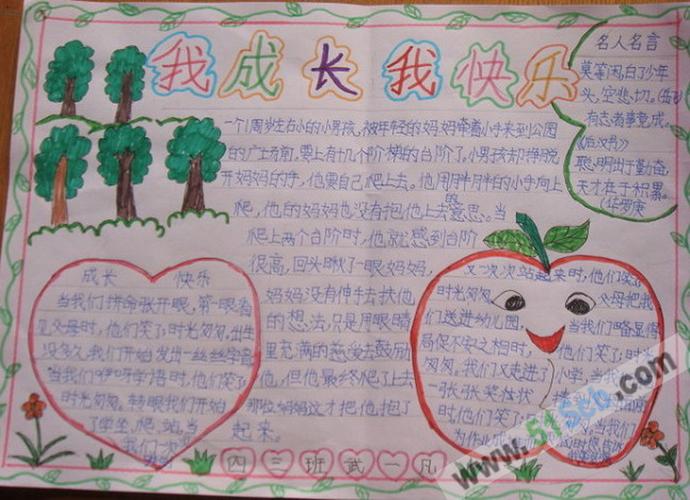 我成长 我快乐
名人名言
莫等闲,白了少年
头,空悲切。(岳飞)
有志者事竟成。
《后汉书》
聪明出于勤奋,
天才在于积累。
(华罗庚
一个1周岁左右小的小男孩,被年轻的妈妈牵着小手来到公园
的广场前,要上有十几个阶梯的台阶了。小男孩却挣脱
开妈妈的手,他要自己爬上去。他用胖胖的小手向上
爬,他的妈妈也没有抱他上去的意思。当
爬上两个台阶时,他就感到台阶
很高,回头瞅了一眼妈妈,
妈妈没有伸手去扶他
的想法,只是用眼睛
里充满的慈爱去鼓励
他,但他最终爬了上去
那位妈妈这才把他抱了
起来。
成长 快乐
当我们拼命张开眼,第一眼看
见父母时,他们笑了;时光匆匆,出生
没多久,我们开始发出一丝丝学音
当我们咿呀学语时,他们笑了
时光匆匆。转眼我们开始
了学坐,爬,站,当
我们一次
又一次次站起来时,他们笑了
时光匆匆 父母把我
们送进幼儿园, 当我们略显得
局促不安之相时, 他们笑了;时光
匆匆。我们又走进了小学,当我
一张张奖状
时,他们笑了; 当我们
为作业
四三班武一凡
www.515cb.com